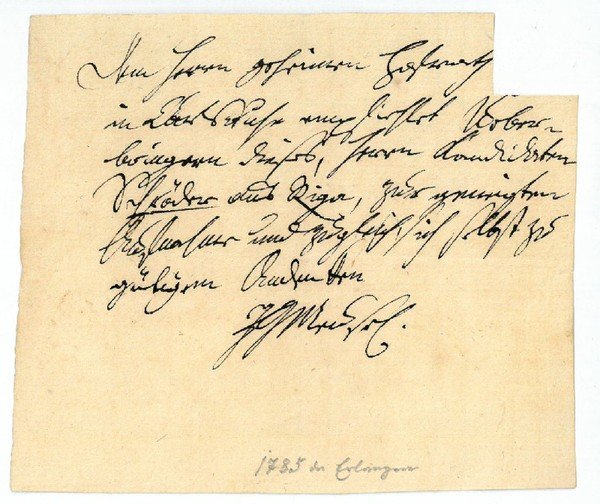 Dem Herrn geheimen Hofrath
in Carlsruhe empfiehlet Ueber-
bringern dieses, Herrn Kandidaten
Schröder aus Riga, zur geneigten
Aufnahme und zugleich sich selbst zu
gütigem Andenken
JGMeusel.
1785 in Erlangen